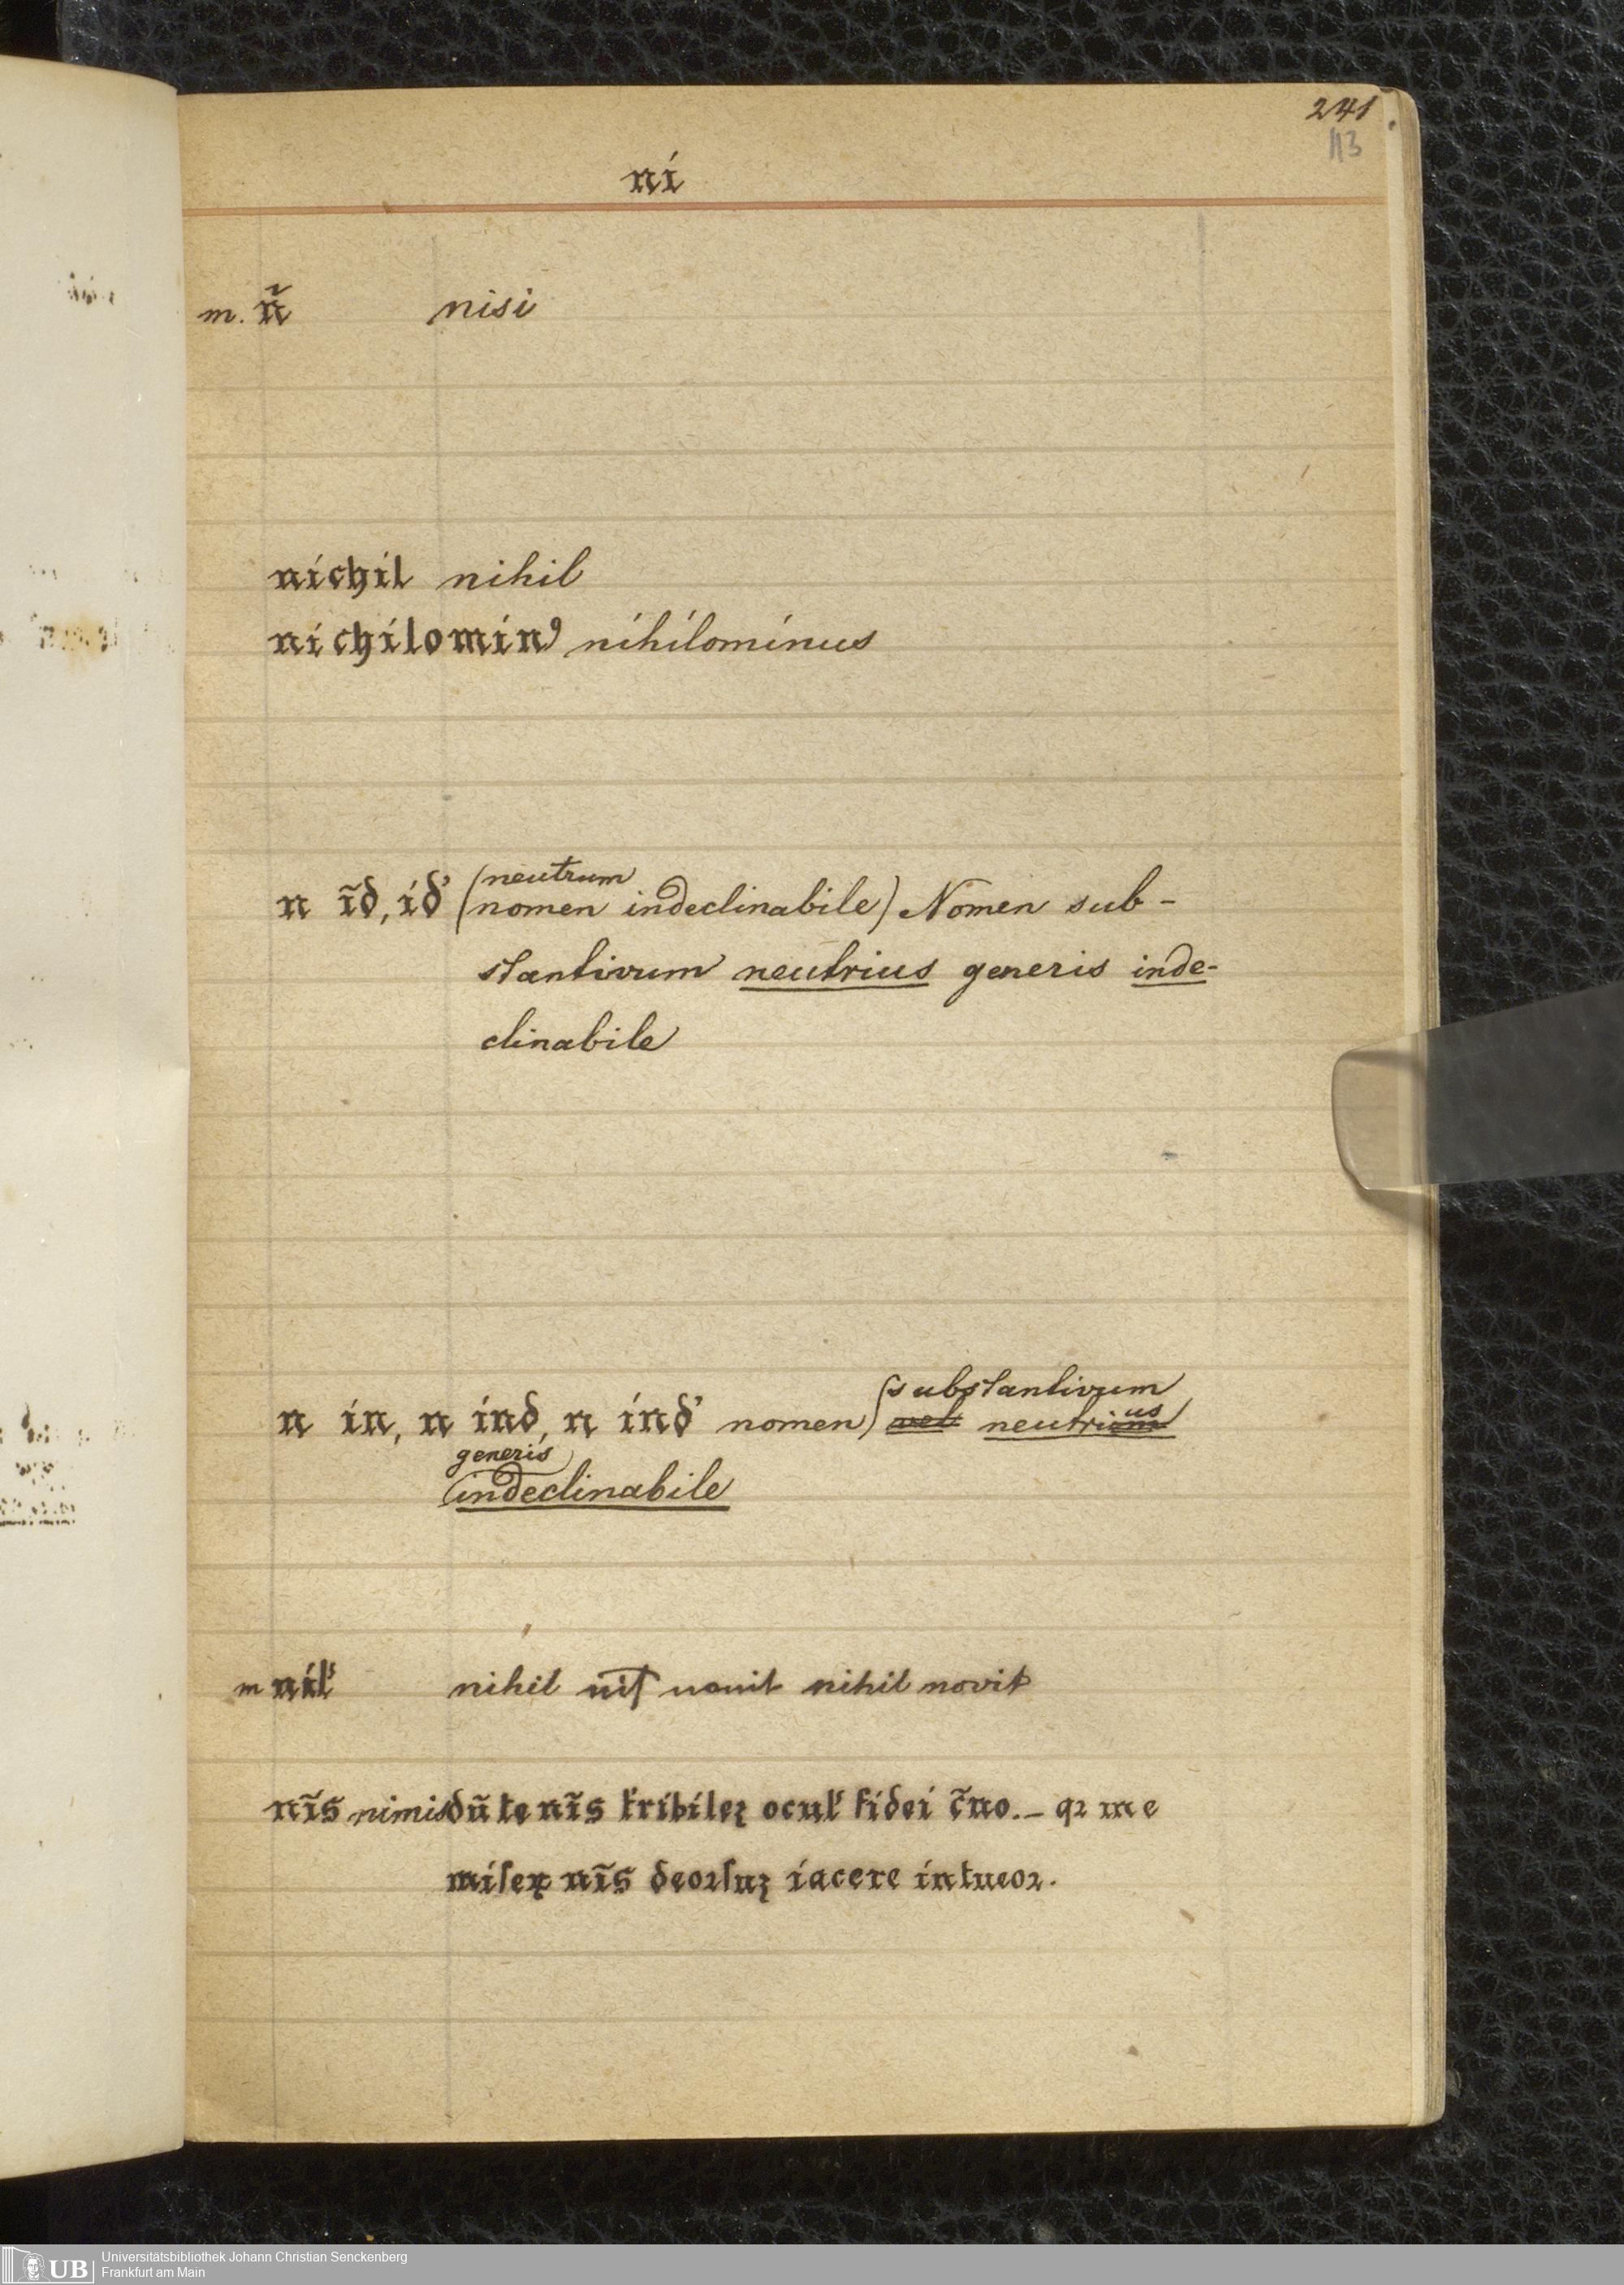 241
113
ni
m. n̄̃ nisi
nichil nihil
nichilominꝰ nihilominus
neutrum
n ĩd, id' (nomen indeclinabile) Nomen sub-
stantivum neutrius generis inde-
clinabile
(substantivum
n in, n ind, n ind' nomen) neutrius
generis
indeclinabile
m nil' nihil nouit nihil novit
nĩs nimis dñe nĩs t'ribileꝫ ocul' fidei c̃no. – qꝛ me
miseꝝ nĩs deoꝛsuꝫ iacere intueoꝛ.
UB Universitätsbibliothek Johann Christian Senckenberg
Frankfurt am Main